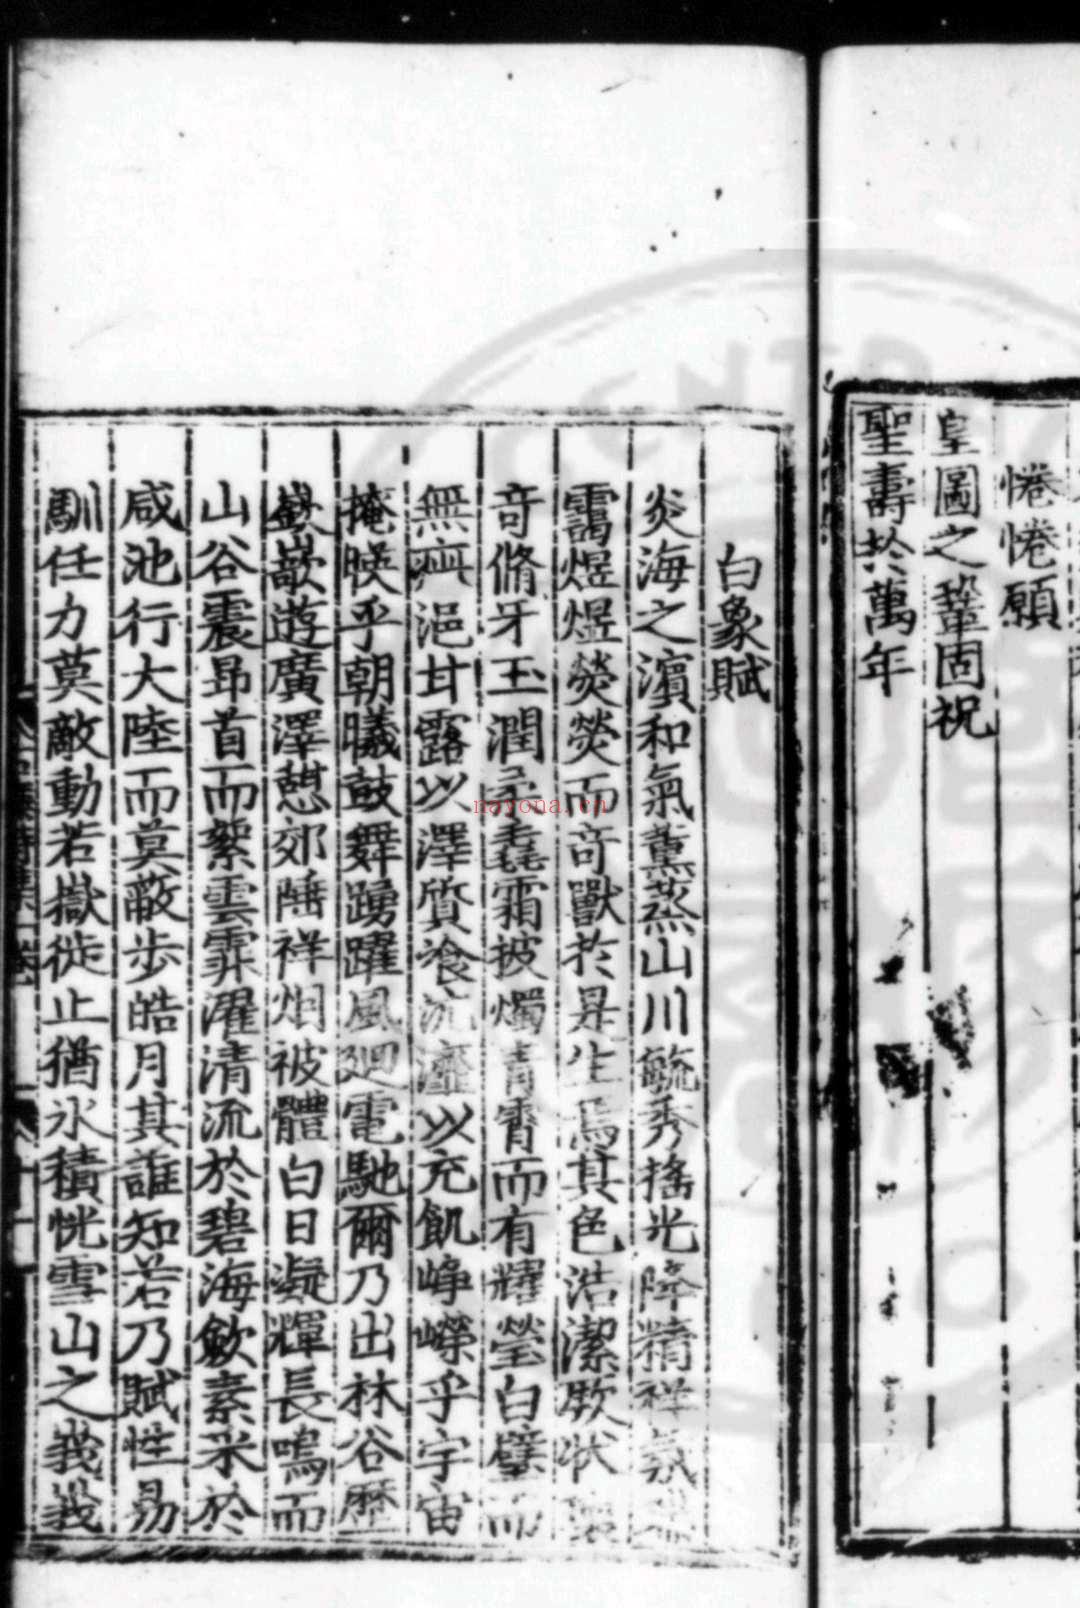 惓惓願
皇圖之鞏固祝
聖壽於萬年
白象賦
炎海之濱和氣薰蒸山川毓秀搖光降精祥氛
靄煜煜熒熒而竒獸於是生焉其色浩潔厥状
竒脩牙玉潤柔毳霜披燭青霄而有耀瑩白璧而
無玼浥甘露以澤質飡沆瀣以充飢崢嶸乎宇宙
掩暎乎朝曦鼓舞踴躍風廻電馳爾乃出林谷歷
嶔㟢遊廣澤憇郊陲祥烟被體白日凝輝長鳴而
山谷震昻首而絮雲霏濯清流於碧海斂素采於
咸池行大陸而莫蔽步皓月其誰知若乃賦性易
馴任力莫敵動若嶽徙止猶氷積恍雪山之峩峩
CENTR
nayona.cn